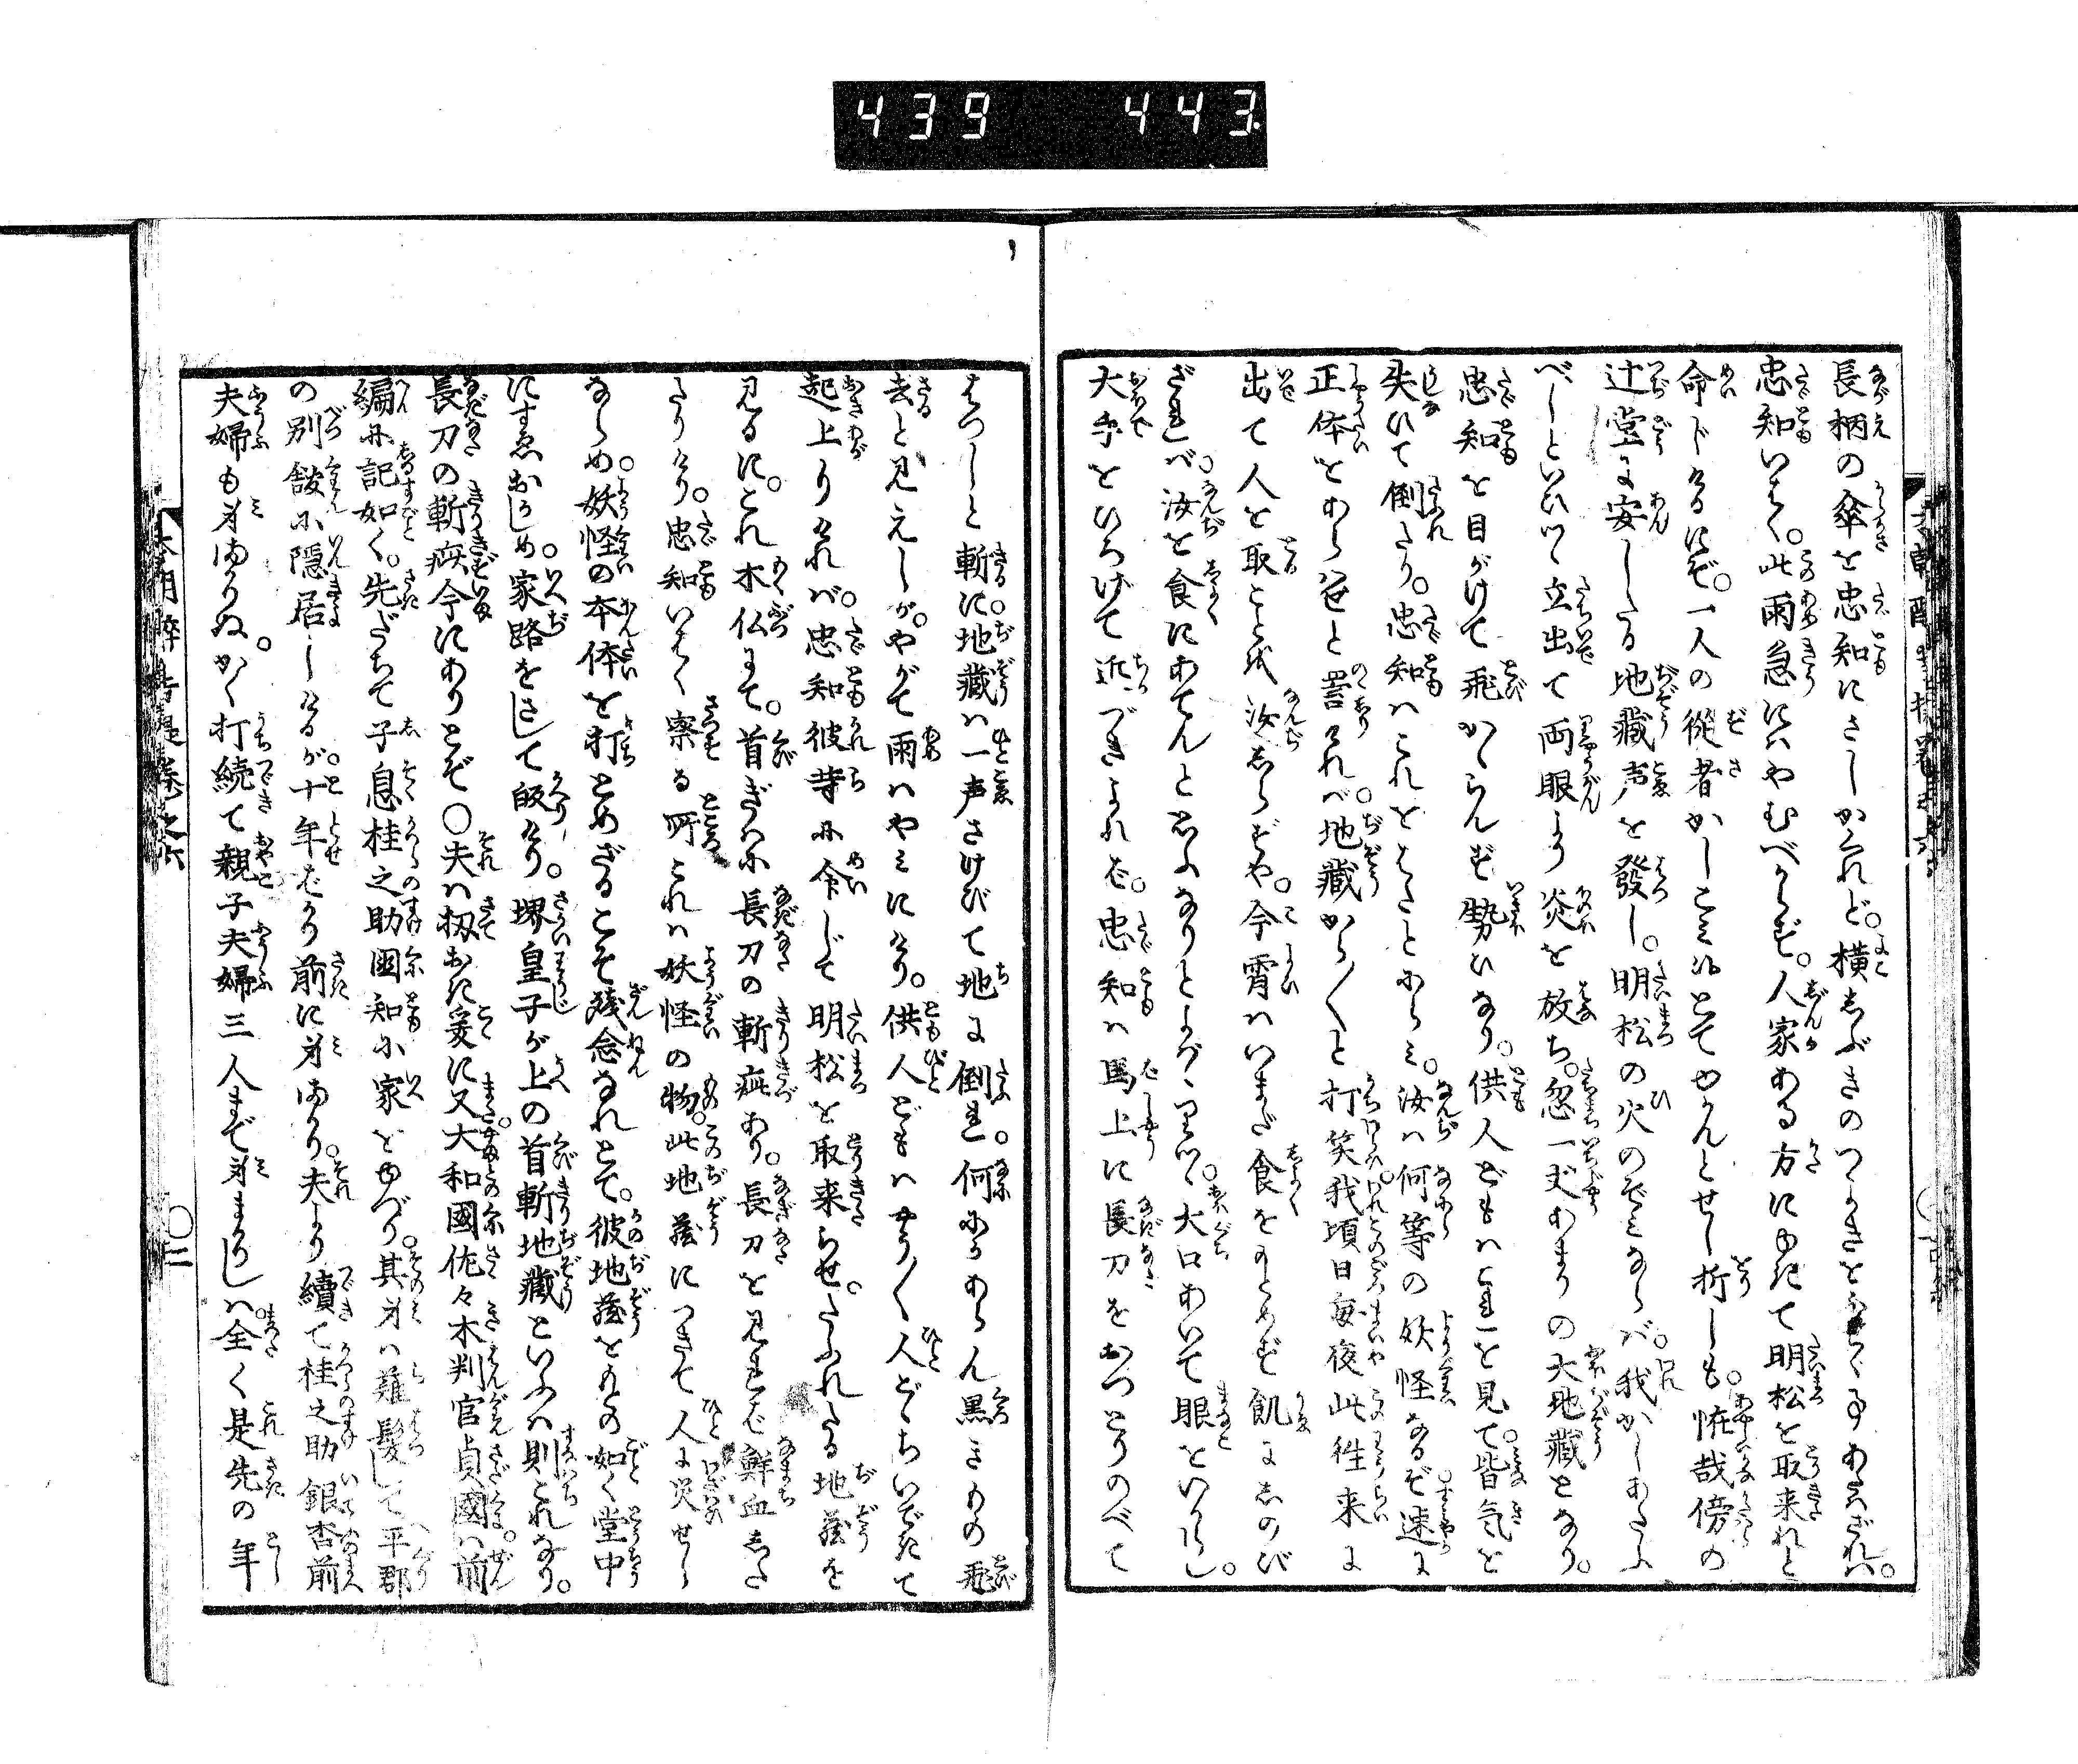 439 443
長柄の傘を忠知にさしかくれど。横しぶきのつよきをふせぐ事あたはざれば。
忠知いはく。此雨急にはやむべからず。人家ある方にゆきて明松を取来れと
命じけるにぞ。一人の従者かしこみ候とてゆかんとせし折しも。怪哉傍の
辻堂に安じたる地藏声を發し。明松の火のぞみならば。我かしあたふ
べしといひつゝ立出て両眼より炎を放ち。忽一丈あまりの大地藏となり。
忠知を目がけて飛かゝらんず勢ひなり。供人どもはこれを見て皆気を
失ひて倒たり。忠知はこれをはたとにらみ。汝は何等の妖怪なるぞ速に
正体をあらはせと詈ければ。地藏から〳〵と打笑我頃日毎夜此徃来に
出て人を取ことを汝しらずや。今霄はいまだ食をもとめず飢にしのび
ざれば。汝を食にあてんと思ふなりとよばゝりつゝ。大口あいて眼をいからし。
大手をひろげて近づきよれば。忠知は馬上に長刀をおつとりのべて
はつしと斬に。地藏は一声さけびて地に倒れ。何にかあらん黒きもの飛
去と見えしが。やがて雨はやみにけり。供人どもはやう〳〵人ごゝちいできて
起上りければ。忠知彼等に命じて明松を取来らせ。たふれたる地藏を
見るに。これ木仏にて。首ぎはに長刀の斬疵あり。長刀を見れば鮮血した
たりけり。忠知いはく察る所これは妖怪の物。此地藏につきて人に災せし
ならめ。妖怪の本体を打とめざるこそ残念なれとて。彼地藏をもとの如く堂中
にすゑおかしめ。家路をさして皈けり。堺皇子が上の首斬地藏といふは則これなり。
長刀の斬疵今にありとぞ○夫は扨おき爰に又大和國佐々木判官貞國は前
編に記如く。先だちて子息桂之助國知に家をゆづり。其身は薙髪して平郡
の別舘に隠居しけるが。十年ばかり前に身まかり。夫より續て桂之助銀杏前
夫婦も身まかりぬ。かく打続て親子夫婦三人まで身まかりしは。全く是先の年